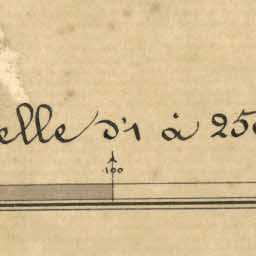 elle d'1 à 250
100